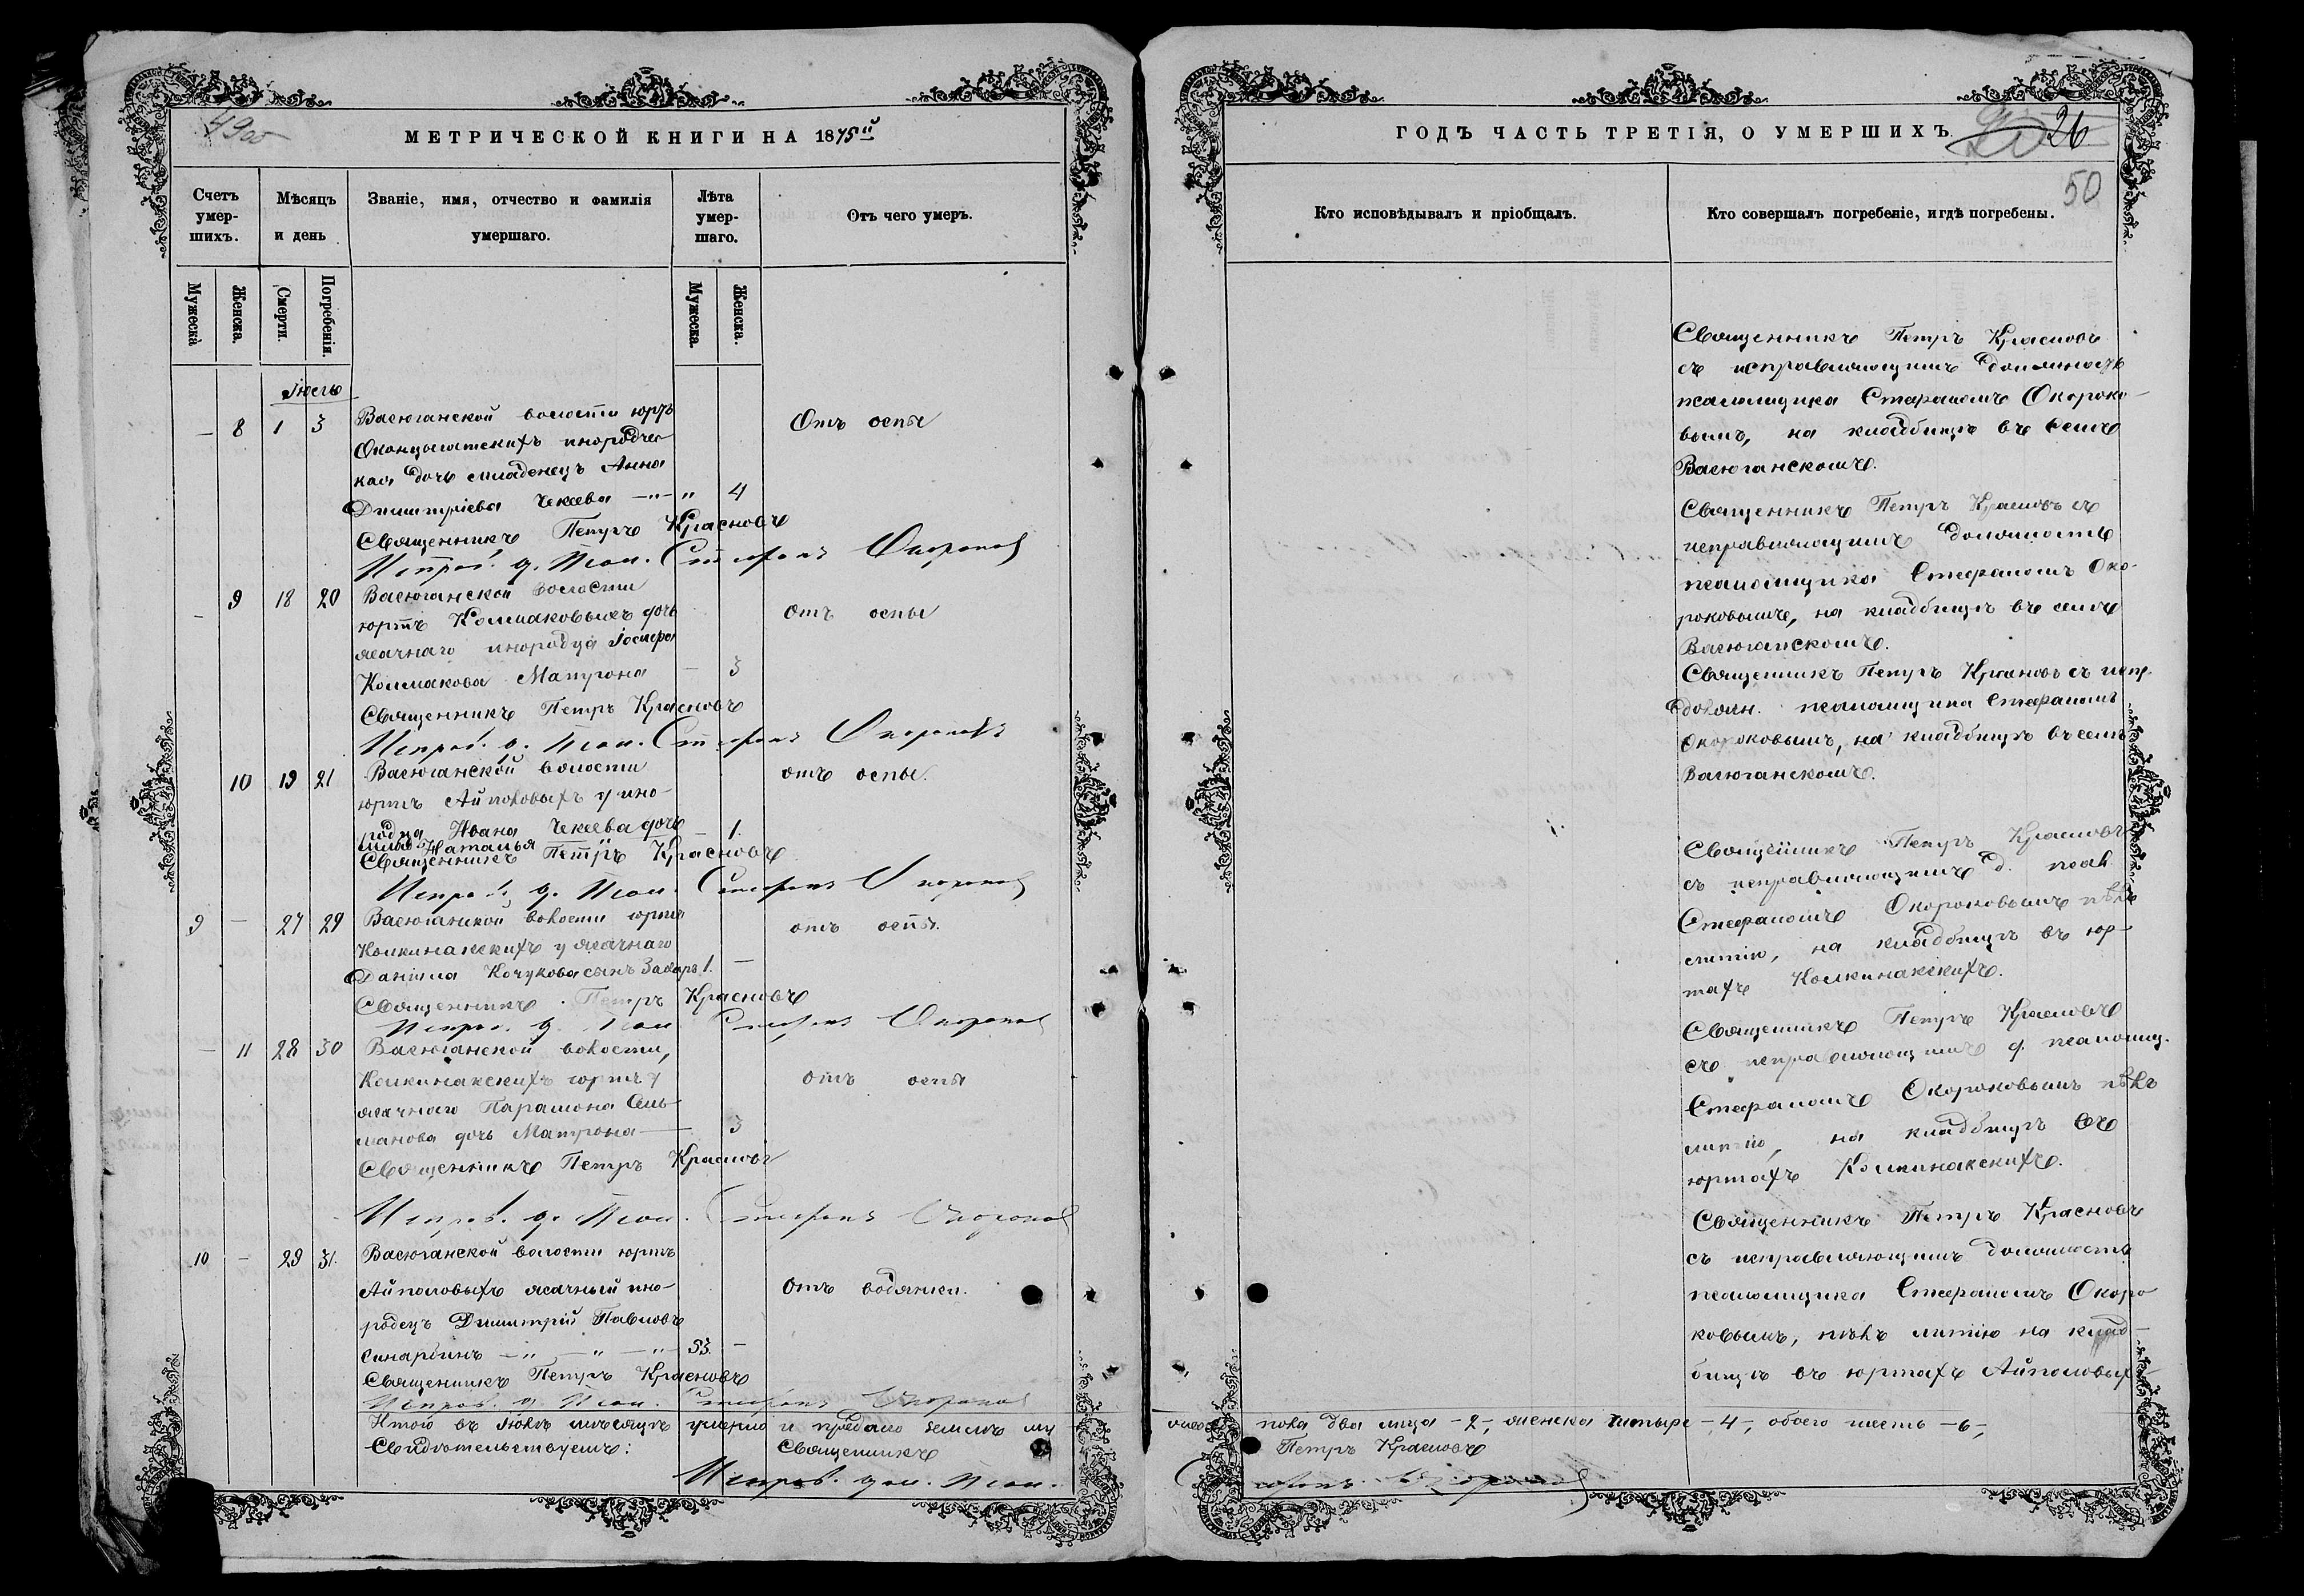 49об
МЕТРИЧЕСКОЙ КНИГИ НА 1875й
Счетъ умер-
шихъ.
Мѣсяцъ
и день
Званіе, имя, отчество и фамилія
умершаго.
Лѣта
умер-
шаго.
Отъ чего умеръ.
Мужеска
Женска.
Смерти.
Погребенія.
Мужеска.
Женска.
Іюль
— 8 1 3 Васюганской волости юртъ Отъ оспы
инородчес-
кая дочь младенецъ Анна
Димитріева Чекеева —"— " 4
Священникъ Петръ Красновъ
Исправ. д. Псал. Стефанъ Окороков
— 9 18 20 Васюганской волости
юртъ Колмаковыхъ дочь отъ оспы
ясачнаго инородца Іосифа
Колмакова Матрона — 3
Священникъ Петръ Красновъ
Исправ. д. Псал. Стефанъ Окороковъ
10 19 21 Васюганской волости отъ оспы.
юртъ Айполовыхъ у ино-
родца Ивана Чекеева дочь — 1.
млад. Наталья
Священникъ Петръ Красновъ
Исправ. д. Псал. Стефанъ Окороков
9 — 27 29 Васюганской волости юртъ отъ оспы.
Колкинакскихъ у ясачнаго
Даніила Кочукова сынъ Захаръ 1. —
Священникъ Петръ Красновъ
Исправ. д. Псал. Стефанъ Окороков
— 11 28 30 Васюганской волости,
Колкинакскихъ юртъ у отъ оспы
ясачнаго Парамона Сель-
манова дочь Матрона — 3
Священникъ Петръ Красновъ
Исправ. д. Псал. Стефанъ Окороков
10 — 29 31. Васюганской волости юртъ
Айполовыхъ ясачный ино- отъ водянки.
родецъ Димитрій Павловъ
Синарбинъ —"— " —"— 53. —
Священникъ Петръ Красновъ
Исправ. д. Псал. Стефанъ Окороков
Итого въ Іюлѣ мѣсяцѣ умерло и предано землѣ му
Свидѣтельствуемъ: Священникъ
Исправ. дол. Псал.
ГОДЪ ЧАСТЬ ТРЕТІЯ, О УМЕРШИХЪ.
26.
50
Кто исповѣдывалъ и пріобщалъ.
Кто совершалъ погребеніе, и гдѣ погребены.
Священникъ Петръ Красновъ
съ исправляющимъ должность
псаломщика Стефаномъ Окороко-
вымъ, на кладбищѣ въ селѣ
Васюганскомъ.
Священникъ Петръ Красновъ съ
исправляющимъ должность
псаломщика Стефаномъ Око-
роковымъ, на кладбищѣ въ селѣ
Васюганскомъ.
Священникъ Петръ Красновъ съ испр.
должн. псаломщика Стефаномъ
Окороковымъ, на кладбищѣ въ селѣ
Васюганскомъ.
Священникъ Петръ Красновъ
съ исправляющимъ д. псал.
Стефаномъ Окороковымъ пѣлъ
литію, на кладбищѣ въ юр-
тахъ Колкинакскихъ.
Священникъ Петръ Красновъ
съ исправляющимъ д. псаломщ.
Стефаномъ Окороковымъ пѣлъ
литію, на кладбищѣ въ
юртахъ Колкинакскихъ.
Священникъ Петръ Красновъ
съ исправляющимъ должность
псаломщика Стефаномъ Окоро-
ковымъ, пѣлъ литію на клад-
бищѣ въ юртахъ Айполовыхъ
пола два лица — 2 —, женска четыре — 4 —, обоего шесть — 6 —,
Петръ Красновъ
Стефанъ Окороков